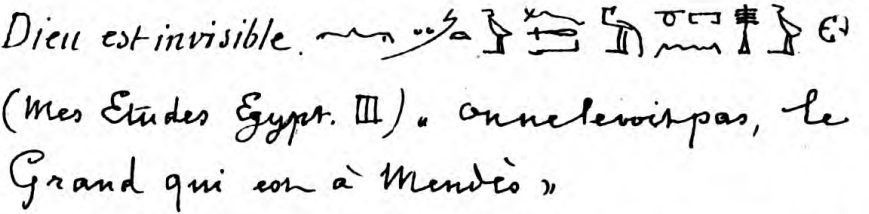 Dieu est invisible.
(Mes Etudes Egypt. III) « on ne le voit pas, le
Grand qui est à Mendès »